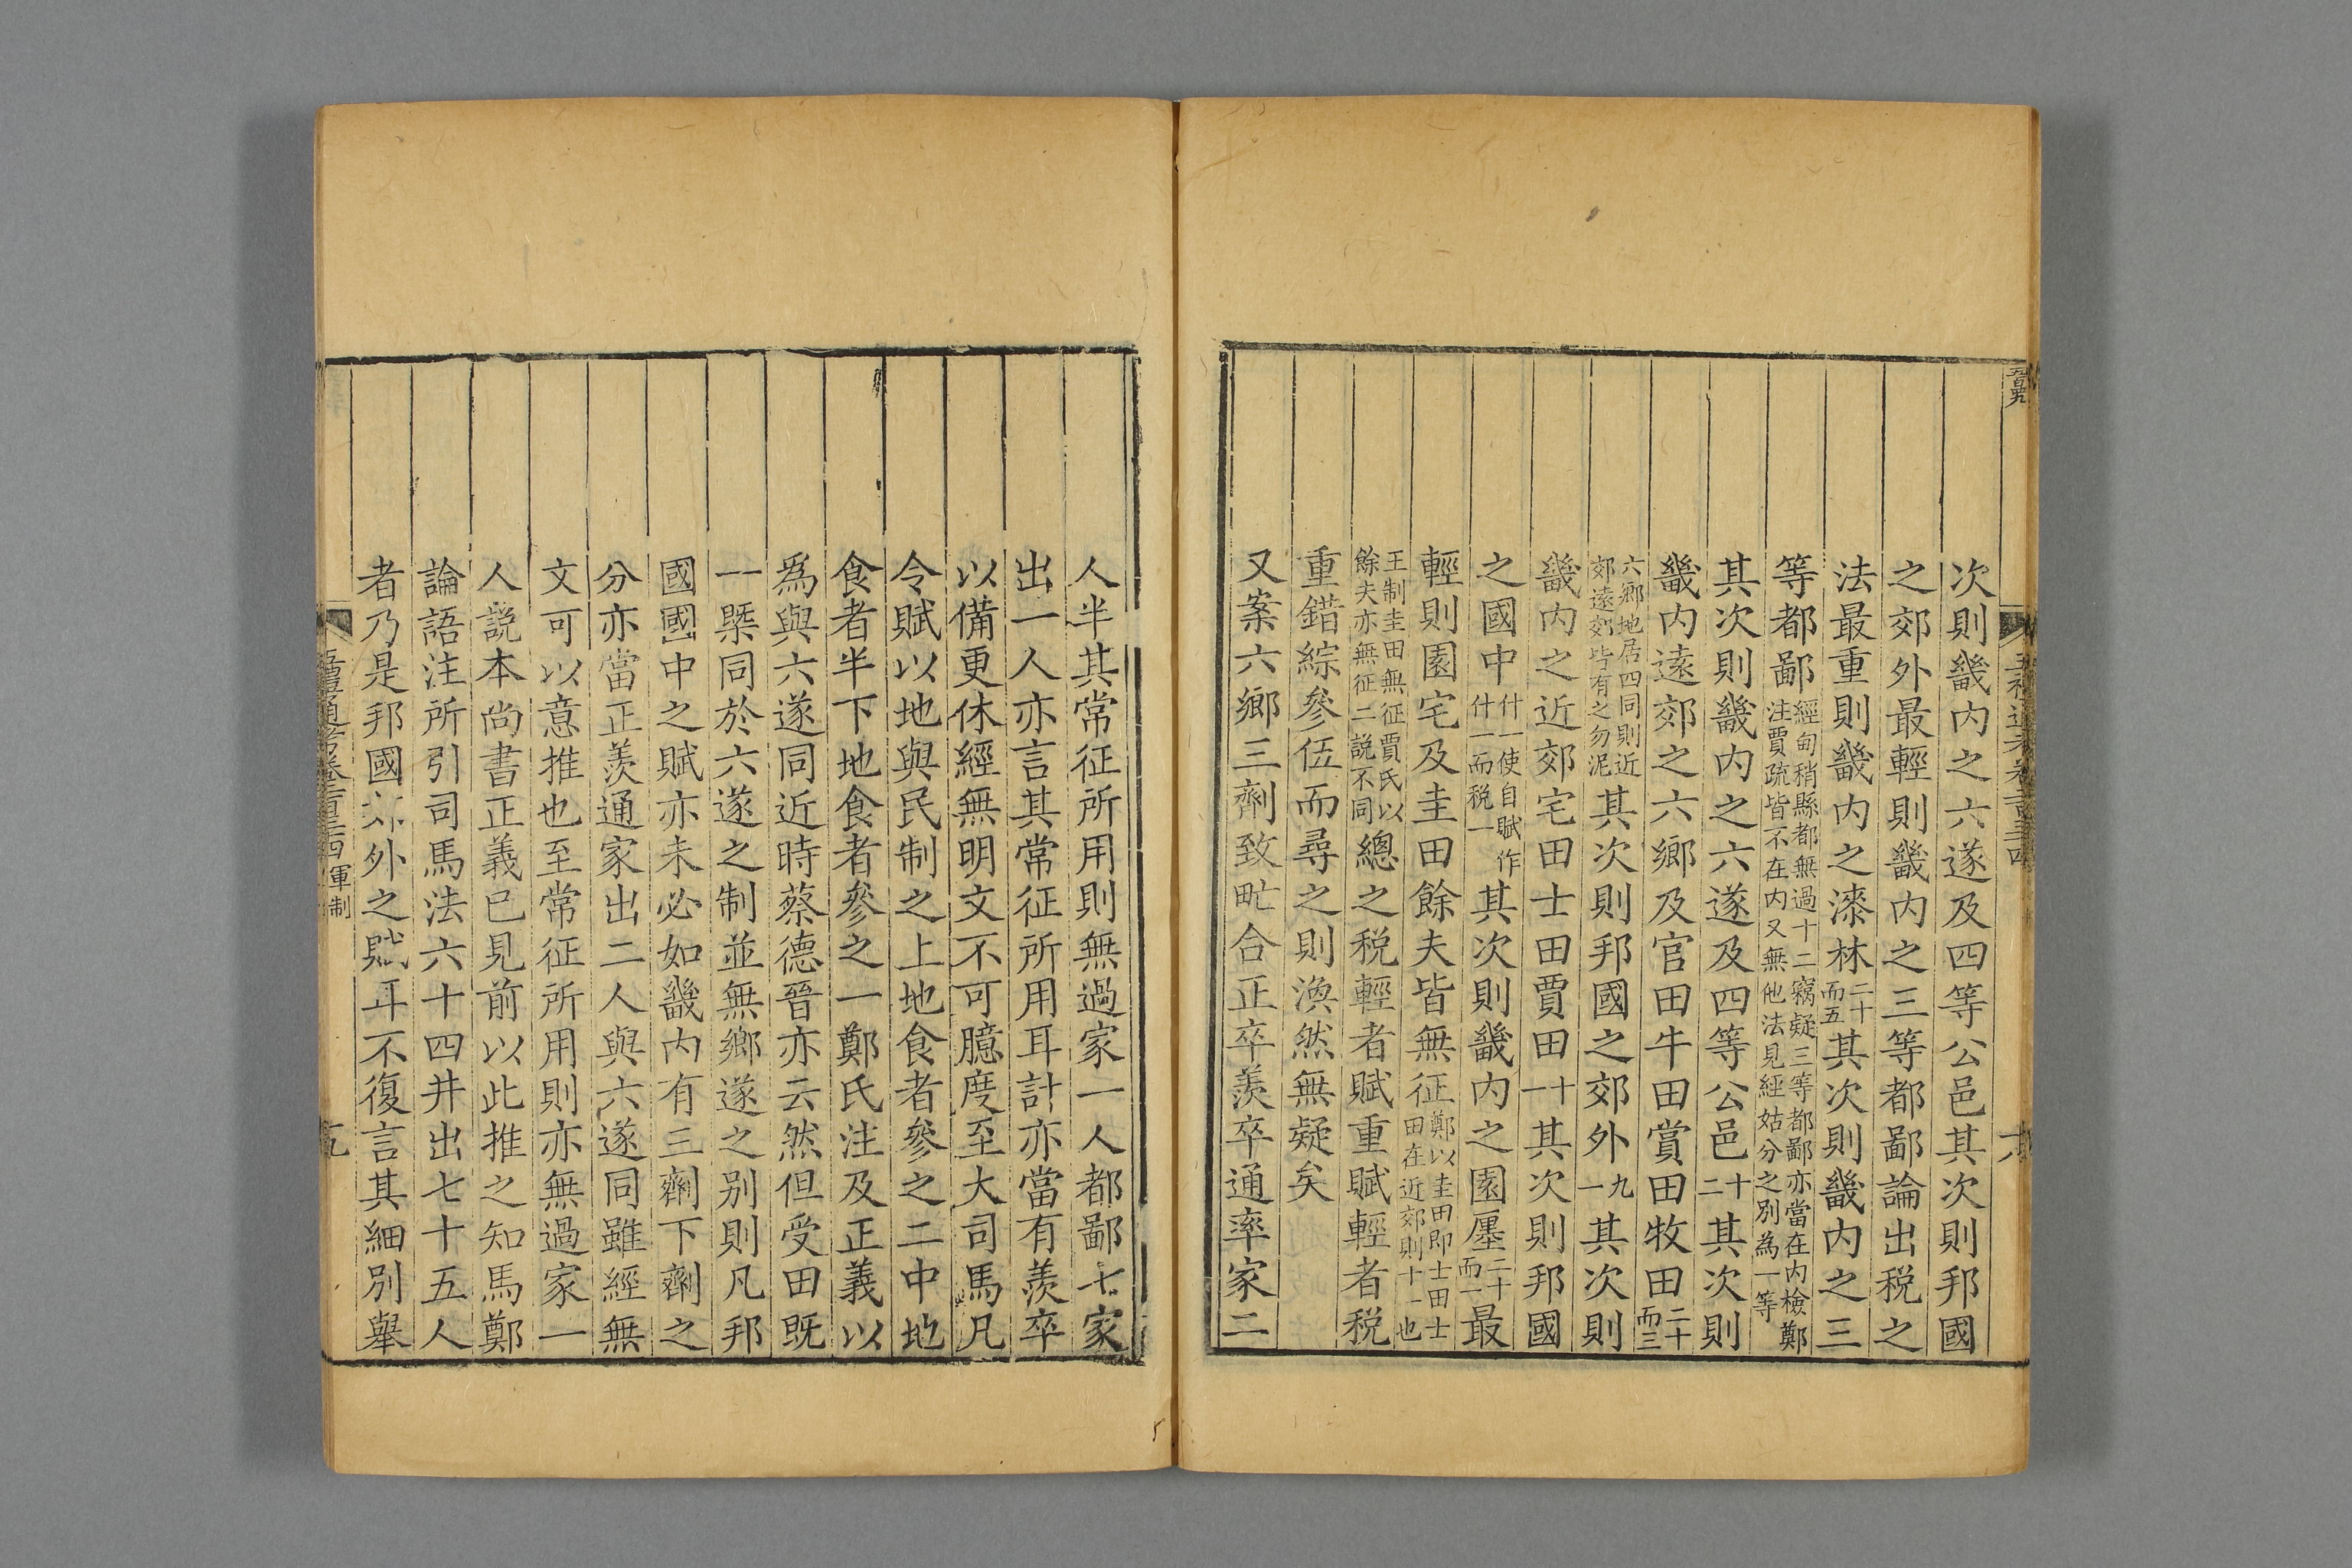 次則畿内之六遂及四等公邑其次則邦國
之郊外最輕則畿内之三等都鄙論出税之
法最重則畿内之漆林二十而五其次則畿内之三
等都鄙經甸稍縣都無過十二竊疑三等都鄙亦當在内檢鄭注賈疏皆不在内又無他法見經姑分之別為一等
其次則畿内之六遂及四等公邑十二其次則
畿内遠郊之六鄉及官田牛田賞田牧田二十而三
六鄉地居四同則近郊遠郊皆有之勿泥其次則邦國之郊外九一其次則
畿内之近郊宅田士田賈田十一其次則邦國
之國中什一使自賦作什一而税一其次則畿内之園廛二十而一最
輕則園宅及圭田餘夫皆無征鄭以圭田即士田士田在近郊則十一也
王制圭田無征賈氏以餘夫亦無征二説不同總之税輕者賦重賦輕者税
重錯綜參伍而尋之則渙然無疑矣
又案六鄉三劑致甿合正卒羨卒通率家二
人半其常征所用則無過家一人都鄙七家
出一人亦言其常征所用耳計亦當有羨卒
以備更休經無明文不可臆度至大司馬凡
令賦以地與民制之上地食者參之二中地
食者半下地食者參之一鄭氏注及正義以
爲與六遂同近時蔡德晉亦云然但受田既
一槩同於六遂之制並無鄉遂之別則凡邦
國國中之賦亦未必如畿内有三劑下劑之
分亦當正羨通家出二人與六遂同雖經無
文可以意推也至常征所用則亦無過家一
人説本尚書正義已見前以此推之知馬鄭
論語注所引司馬法六十四井出七十五人
者乃是邦國郊外之賦耳不復言其細別舉
五禮通考卷二百三十四 軍制